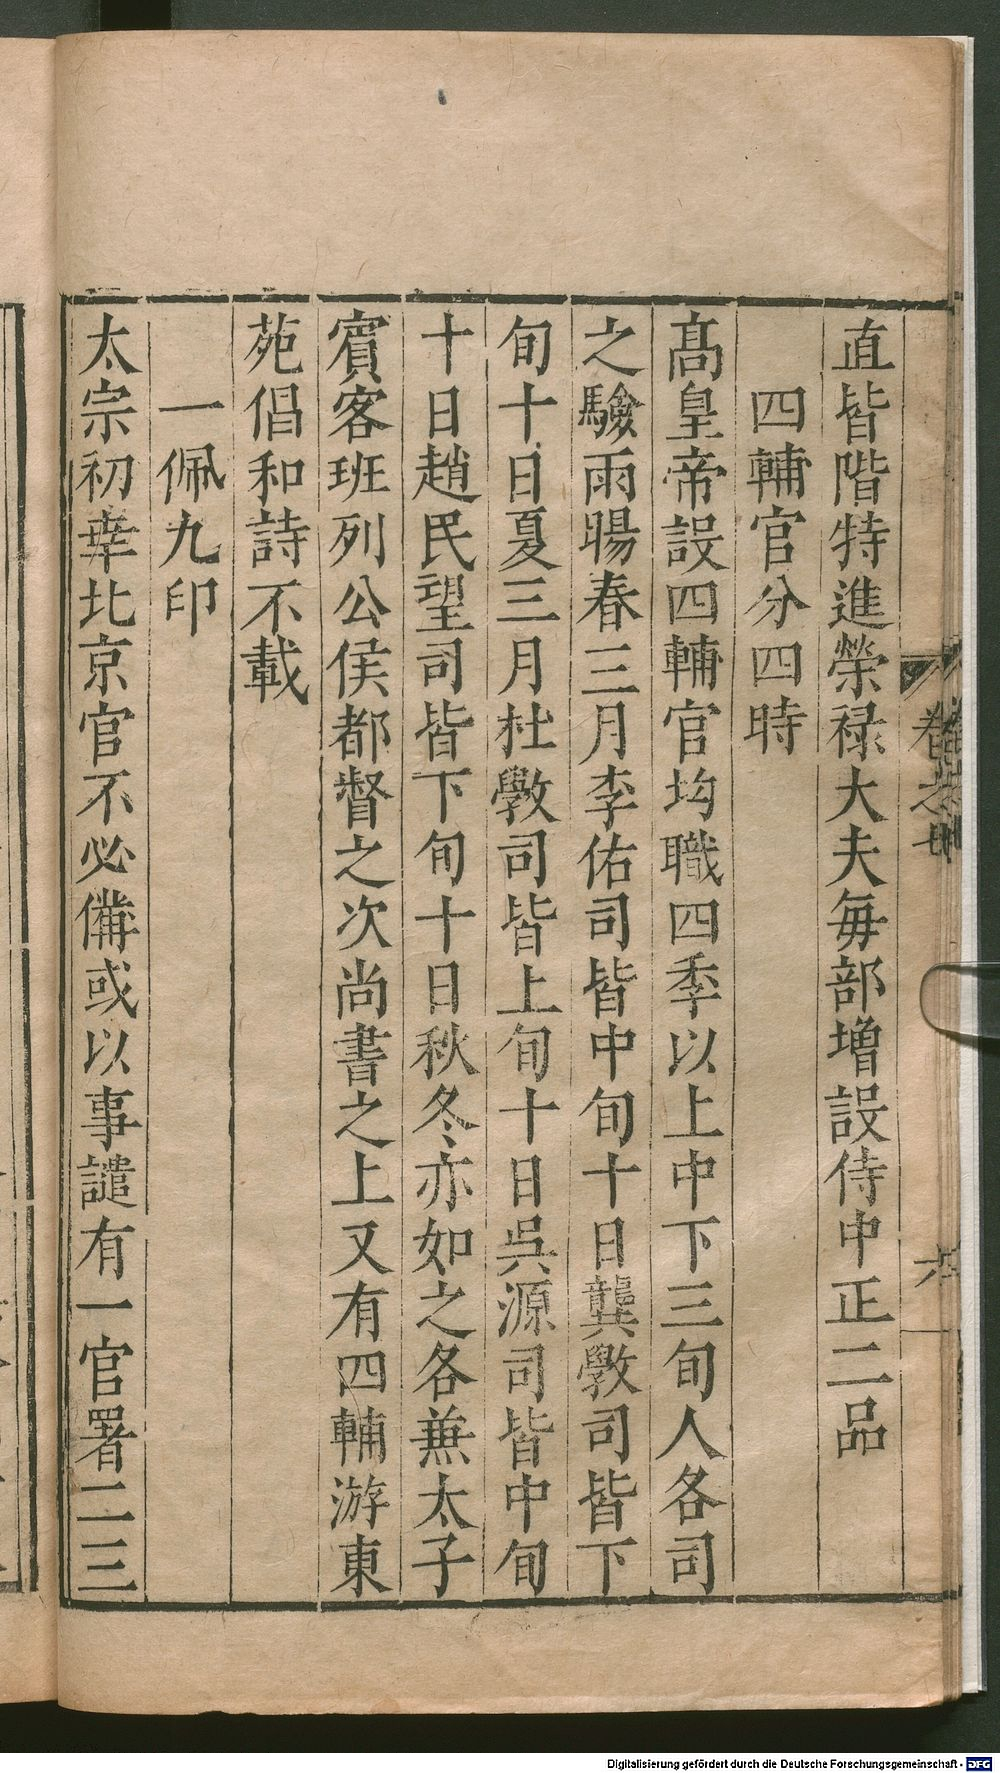 直皆階特進榮祿大夫每部增設侍中正二品
四輔官分四時
髙皇帝設四輔官均職四季以上中下三旬人各司
之驗雨暘春三月李佑司皆中旬十日龔斆司皆下
旬十日夏三月杜斆司皆上旬十日吳源司皆中旬
十日趙民望司皆下旬十日秋冬亦如之各兼太子
賓客班列公侯都督之次尚書之上又有四輔游東
苑倡和詩不載
一佩九印
太宗初幸北京官不必備或以事譴有一官署二三
卷之
六
Digitalisierung gefördert durch die Deutsche Forschungsgemeinschaft - DFG